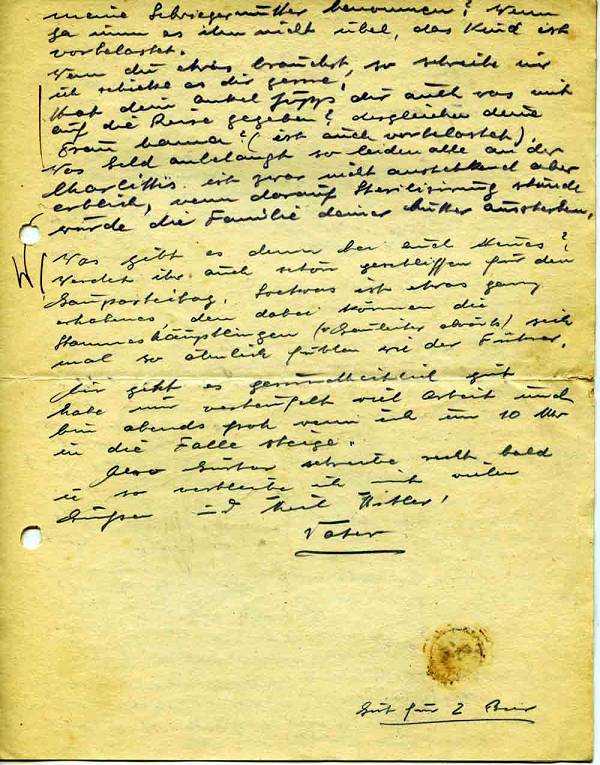 meine Schwiegermutter benommen? Wenn
ja nimm es ihm nicht übel, das Kind ist
vorbelastet.
Wenn du etwas brauchst, so schreibe mir
ich schicke es dir gerne!
Hat dein onkel Jupps dir auch was mit
auf die Reise gegeben? desgleichen deine
Frau Mama? (ist auch vorbelastet).
Was Geld anbelangt so leiden alle an der
ist zwar nicht ansteckend aber
erblich, wenn darauf Sterilisirung stünde
würde die Familie deiner Mutter aussterben.
Was gibt es denn bei euch Neues?
Werdet ihr auch schön geschliffen für den
Gauparteitag. Soetwas ist etwas ganz
erhabenes, den dabei können die
Stammeshäuptlingen (Gauleiter) sich
mal so ähnlich fühlen wie der Führer.
Mir geht es gesundheitlich gut
habe nur verteufelt viel Arbeit und
bin abends froh wenn ich um 10 Uhr
in die Falle steige.
Also schreibe recht bald
u so verbleibe ich mit vielen
Grüßen und Heil Hitler!
Vater
Gut für 2 Bier